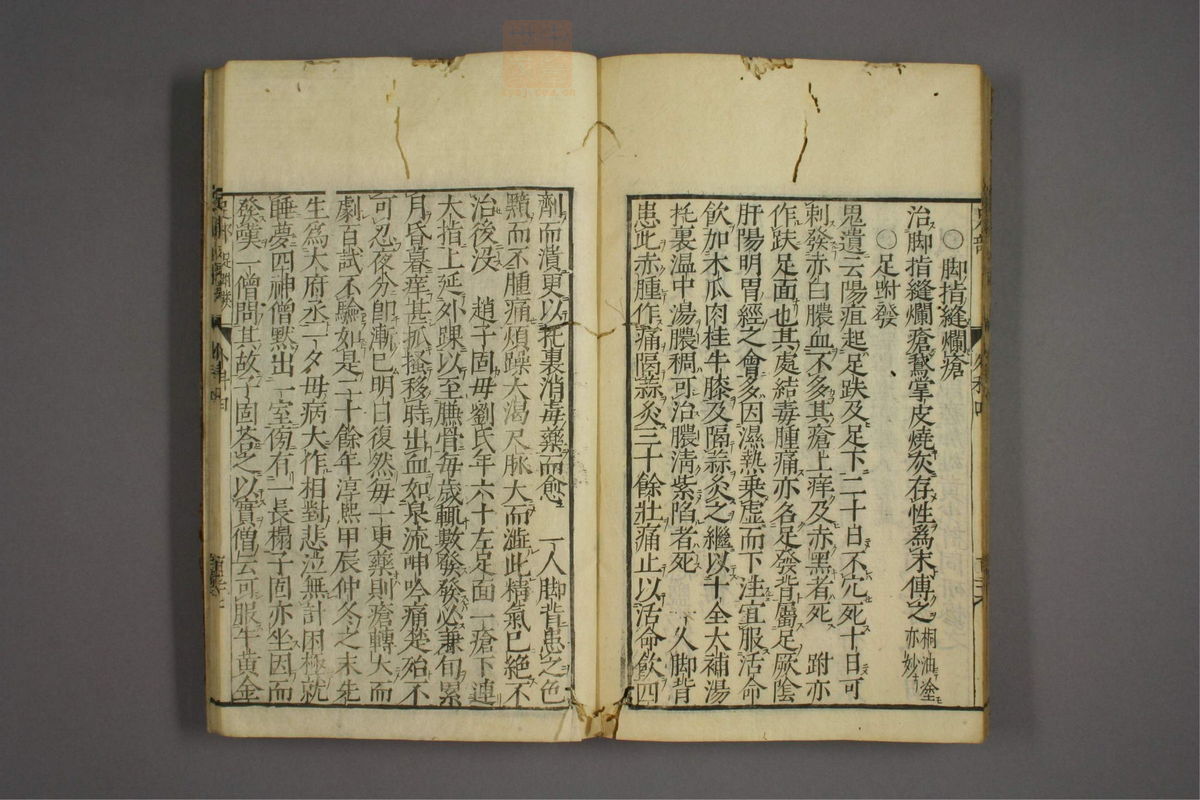 脚指縫爛瘡
治脚指縫爛瘡鵞掌皮燒灰存性爲末傳之桐油塗亦妙
足跗發
鬼遺云陽疽起足趺及足下二十日不穴死十日可
刺發赤白膿血不多其瘡上痒及赤黑者死 跗亦
作趺足面也其處結毒腫痛亦名足發背屬足厥陰
肝陽明胃經之會多因濕熱乗虛而下注宜服活命
飲加木瓜肉桂牛膝及隔蒜灸之繼以十全大補湯
托裏温中湯膿稠可治膿清紫陷者死 一人脚背
患此赤腫作痛隔蒜灸三十餘壯痛止以活命飲四
劑而潰更以托裏消毒藥而愈 一人脚背患之色
黯而不腫痛煩躁大渴尺脉大而澁此精氣已絕不
治後沒 趙子固毋劉氏年六十左足面一瘡下連
大指上延外踝以至臁骨每歲輒數發發必兼旬累
月昏暮痒甚抓搔移時出血如泉流呻吟痛楚殆不
可忍夜分即漸已明日復然每一更藥則瘡轉大而
劇百試不驗如是二十餘年淳熙甲辰仲冬之末先
生爲大府丞一夕毋病大作相對悲泣無計困極就
睡夢四神僧黙出一室傍有一長榻子固亦坐因而
發嘆一僧問其故子固荅之以實僧云可服牛黃金